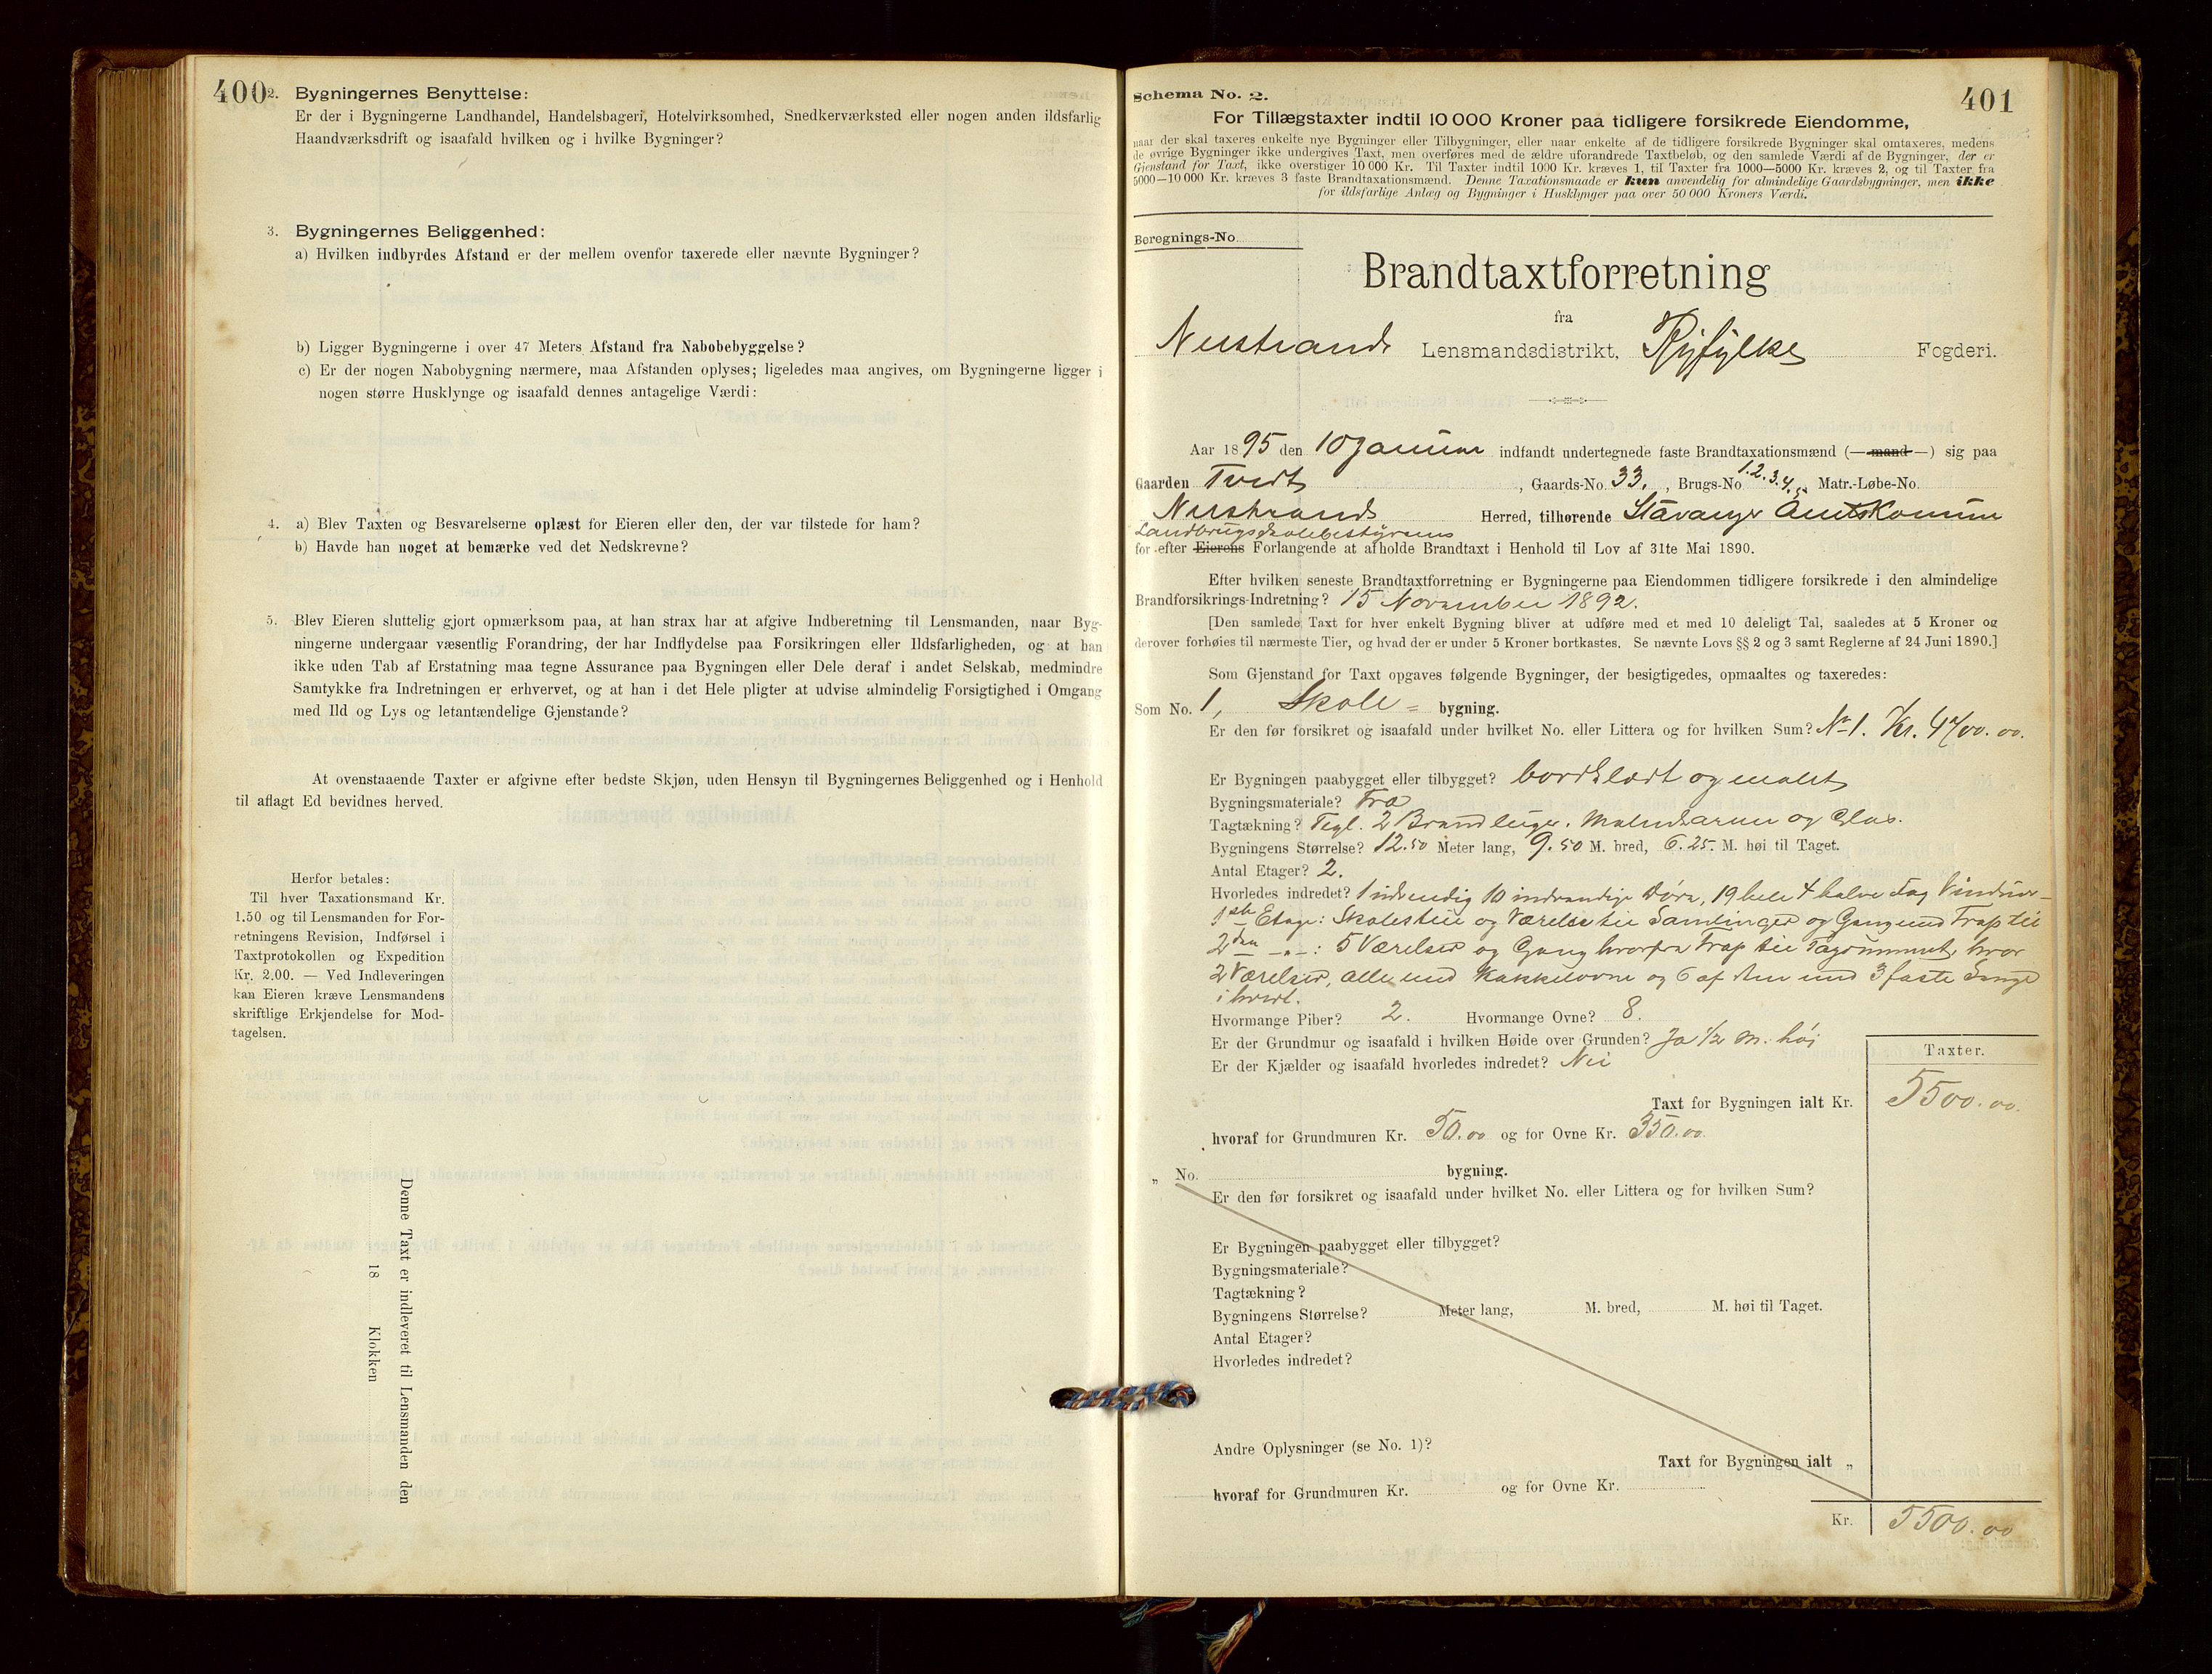 400
2. Bygningernes Benyttelse:
Er der i Bygningerne Landhandel, Handelsbageri, Hotelvirksomhed, Snedkerværksted eller nogen anden ildsfarlig
Haandværksdrift og isaafald hvilken og i hvilke Bygninger?
3. Bygningernes Beliggenhed:
a) Hvilken indbyrdes Afstand er der mellem ovenfor taxerede eller nævnte Bygninger?
b) Ligger Bygningerne i over 47 Meters Afstand fra Nabobebyggelse?
c) Er der nogen Nabobygning nærmere, maa Afstanden oplyses; ligeledes maa angives, om Bygningerne ligger i
nogen større Husklynge og isaafald dennes antagelige Værdi:
4. a) Blev Taxten og Besvarelserne oplæst for Eieren eller den, der var tilstede for ham?
b) Havde han noget at bemærke ved det Nedskrevne?
5. Blev Eieren sluttelig gjort opmærksom paa, at han strax har at afgive Indberetning til Lensmanden, naar Byg-
ningerne undergaar væsentlig Forandring, der har Indflydelse paa Forsikringen eller Ildsfarligheden, og at han
ikke uden Tab af Erstatning maa tegne Assurance paa Bygningen eller Dele deraf i andet Selskab, medmindre
Samtykke fra Indretningen er erhvervet, og at han i det Hele pligter at udvise almindelig Forsigtighed i Omgang
med Ild og Lys og letantændelige Gjenstande?
At ovenstaaende Taxter er afgivne efter bedste Skjøn, uden Hensyn til Bygningernes Beliggenhed og i Henhold
til aflagt Ed bevidnes herved.
Herfor betales:
Til hver Taxationsmand Kr.
1.50 og til Lensmanden for For-
retningens Revision, Indførsel i
Taxtprotokollen og Expedition
Kr. 2.00. — Ved Indleveringen
kan Eieren kræve Lensmandens
skriftlige Erkjendelse for Mod-
tagelsen.
Denne Taxt er indleveret til Lensmanden den
18 Klokken
401
Schema No. 2.
For Tillægstaxter indtil 10 000 Kroner paa tidligere forsikrede Eiendomme,
naar der skal taxeres enkelte nye Bygninger eller Tilbygninger, eller naar enkelte af de tidligere forsikrede Bygninger skal omtaxeres, medens
de øvrige Bygninger ikke undergives Taxt, men overføres med de ældre uforandrede Taxtbeløb, og den samlede Værdi af de Bygninger, der er
Gjenstand for Taxt, ikke overstiger 10 000 Kr. Til Taxter indtil 1000 Kr. kræves 1, til Taxter fra 1000—5000 Kr. kræves 2, og til Taxter fra
5000—10 000 Kr. kræves 3 faste Brandtaxationsmænd. Denne Taxationsmaade er kun anvendelig for almindelige Gaardsbygninger, men ikke
for ildsfarlige Anlæg og Bygninger i Husklynger paa over 50 000 Kroners Værdi.
Beregnings-No.
Brandtaxtforretning
fra
Nerstrands Lensmandsdistrikt, Ryfylke Fogderi.
Aar 1895 den 10 Januar indfandt undertegnede faste Brandtaxationsmænd (— mand —) sig paa
Gaarden Tveit, Gaards-No. 33., Brugs-No 1.2.3.4.5. Matr.-Løbe-No.
Nerstrands Herred, tilhørende Stavanger Amtskomun
Landbrugsskolebestyrens
for efter Eierens Forlangende at afholde Brandtaxt i Henhold til Lov af 31te Mai 1890.
Efter hvilken seneste Brandtaxtforretning er Bygningerne paa Eiendommen tidligere forsikrede i den almindelige
Brandforsikrings-Indretning? 15 November 1892.
[Den samlede Taxt for hver enkelt Bygning bliver at udføre med et med 10 deleligt Tal, saaledes at 5 Kroner og
derover forhøies til nærmeste Tier, og hvad der er under 5 Kroner bortkastes. Se nævnte Lovs §§ 2 og 3 samt Reglerne af 24 Juni 1890.]
Som Gjenstand for Taxt opgaves følgende Bygninger, der besigtigedes, opmaaltes og taxeredes:
Som No. 1, Skole= bygning.
Er den før forsikret og isaafald under hvilket No. eller Littera og for hvilken Sum? No 1. Kr. 4700.00.
Er Bygningen paabygget eller tilbygget? bordklædt og malet
Bygningsmateriale? Træ
Tagtækning? Tegl. 2 Brandleiger. Malnskarm og Glas.
Bygningens Størrelse? 12.50 Meter lang, 9.50 M. bred, 6.25. M. høi til Taget.
Antal Etager? 2.
Hvorledes indredet? 1 udvendig 10 indvendige Døre, 19 hele 4 halve Fag Vinduer-
1ste Etage: Skolestue og Værelse til Samlinger og Gang med Trap til
2den -"-: 5 Værelser og Gang hvorfra Trap til Tagrummet, hvor
2 Værelser, alle med Kakkelovne og 6 af dem med 3 faste Senge
i hvert.
Hvormange Piber? 2. Hvormange Ovne? 8.
Er der Grundmur og isaafald i hvilken Høide over Grunden? Ja ½ m. høi
Er der Kjælder og isaafald hvorledes indredet? Nei
Taxter.
Taxt for Bygningen ialt Kr. 5500.00.
hvoraf for Grundmuren Kr. 50.00 og for Ovne Kr. 350.00
„ No. bygning.
Er den før forsikret og isaafald under hvilket No. eller Littera og for hvilken Sum?
Er Bygningen paabygget eller tilbygget?
Bygningsmateriale?
Tagtækning?
Bygningens Størrelse? Meter lang, M. bred, M. høi til Taget.
Antal Etager?
Hvorledes indredet?
Andre Oplysninger (se No. 1)?
Taxt for Bygningen ialt „
hvoraf for Grundmuren Kr. og for Ovne Kr.
Kr. 5500.00